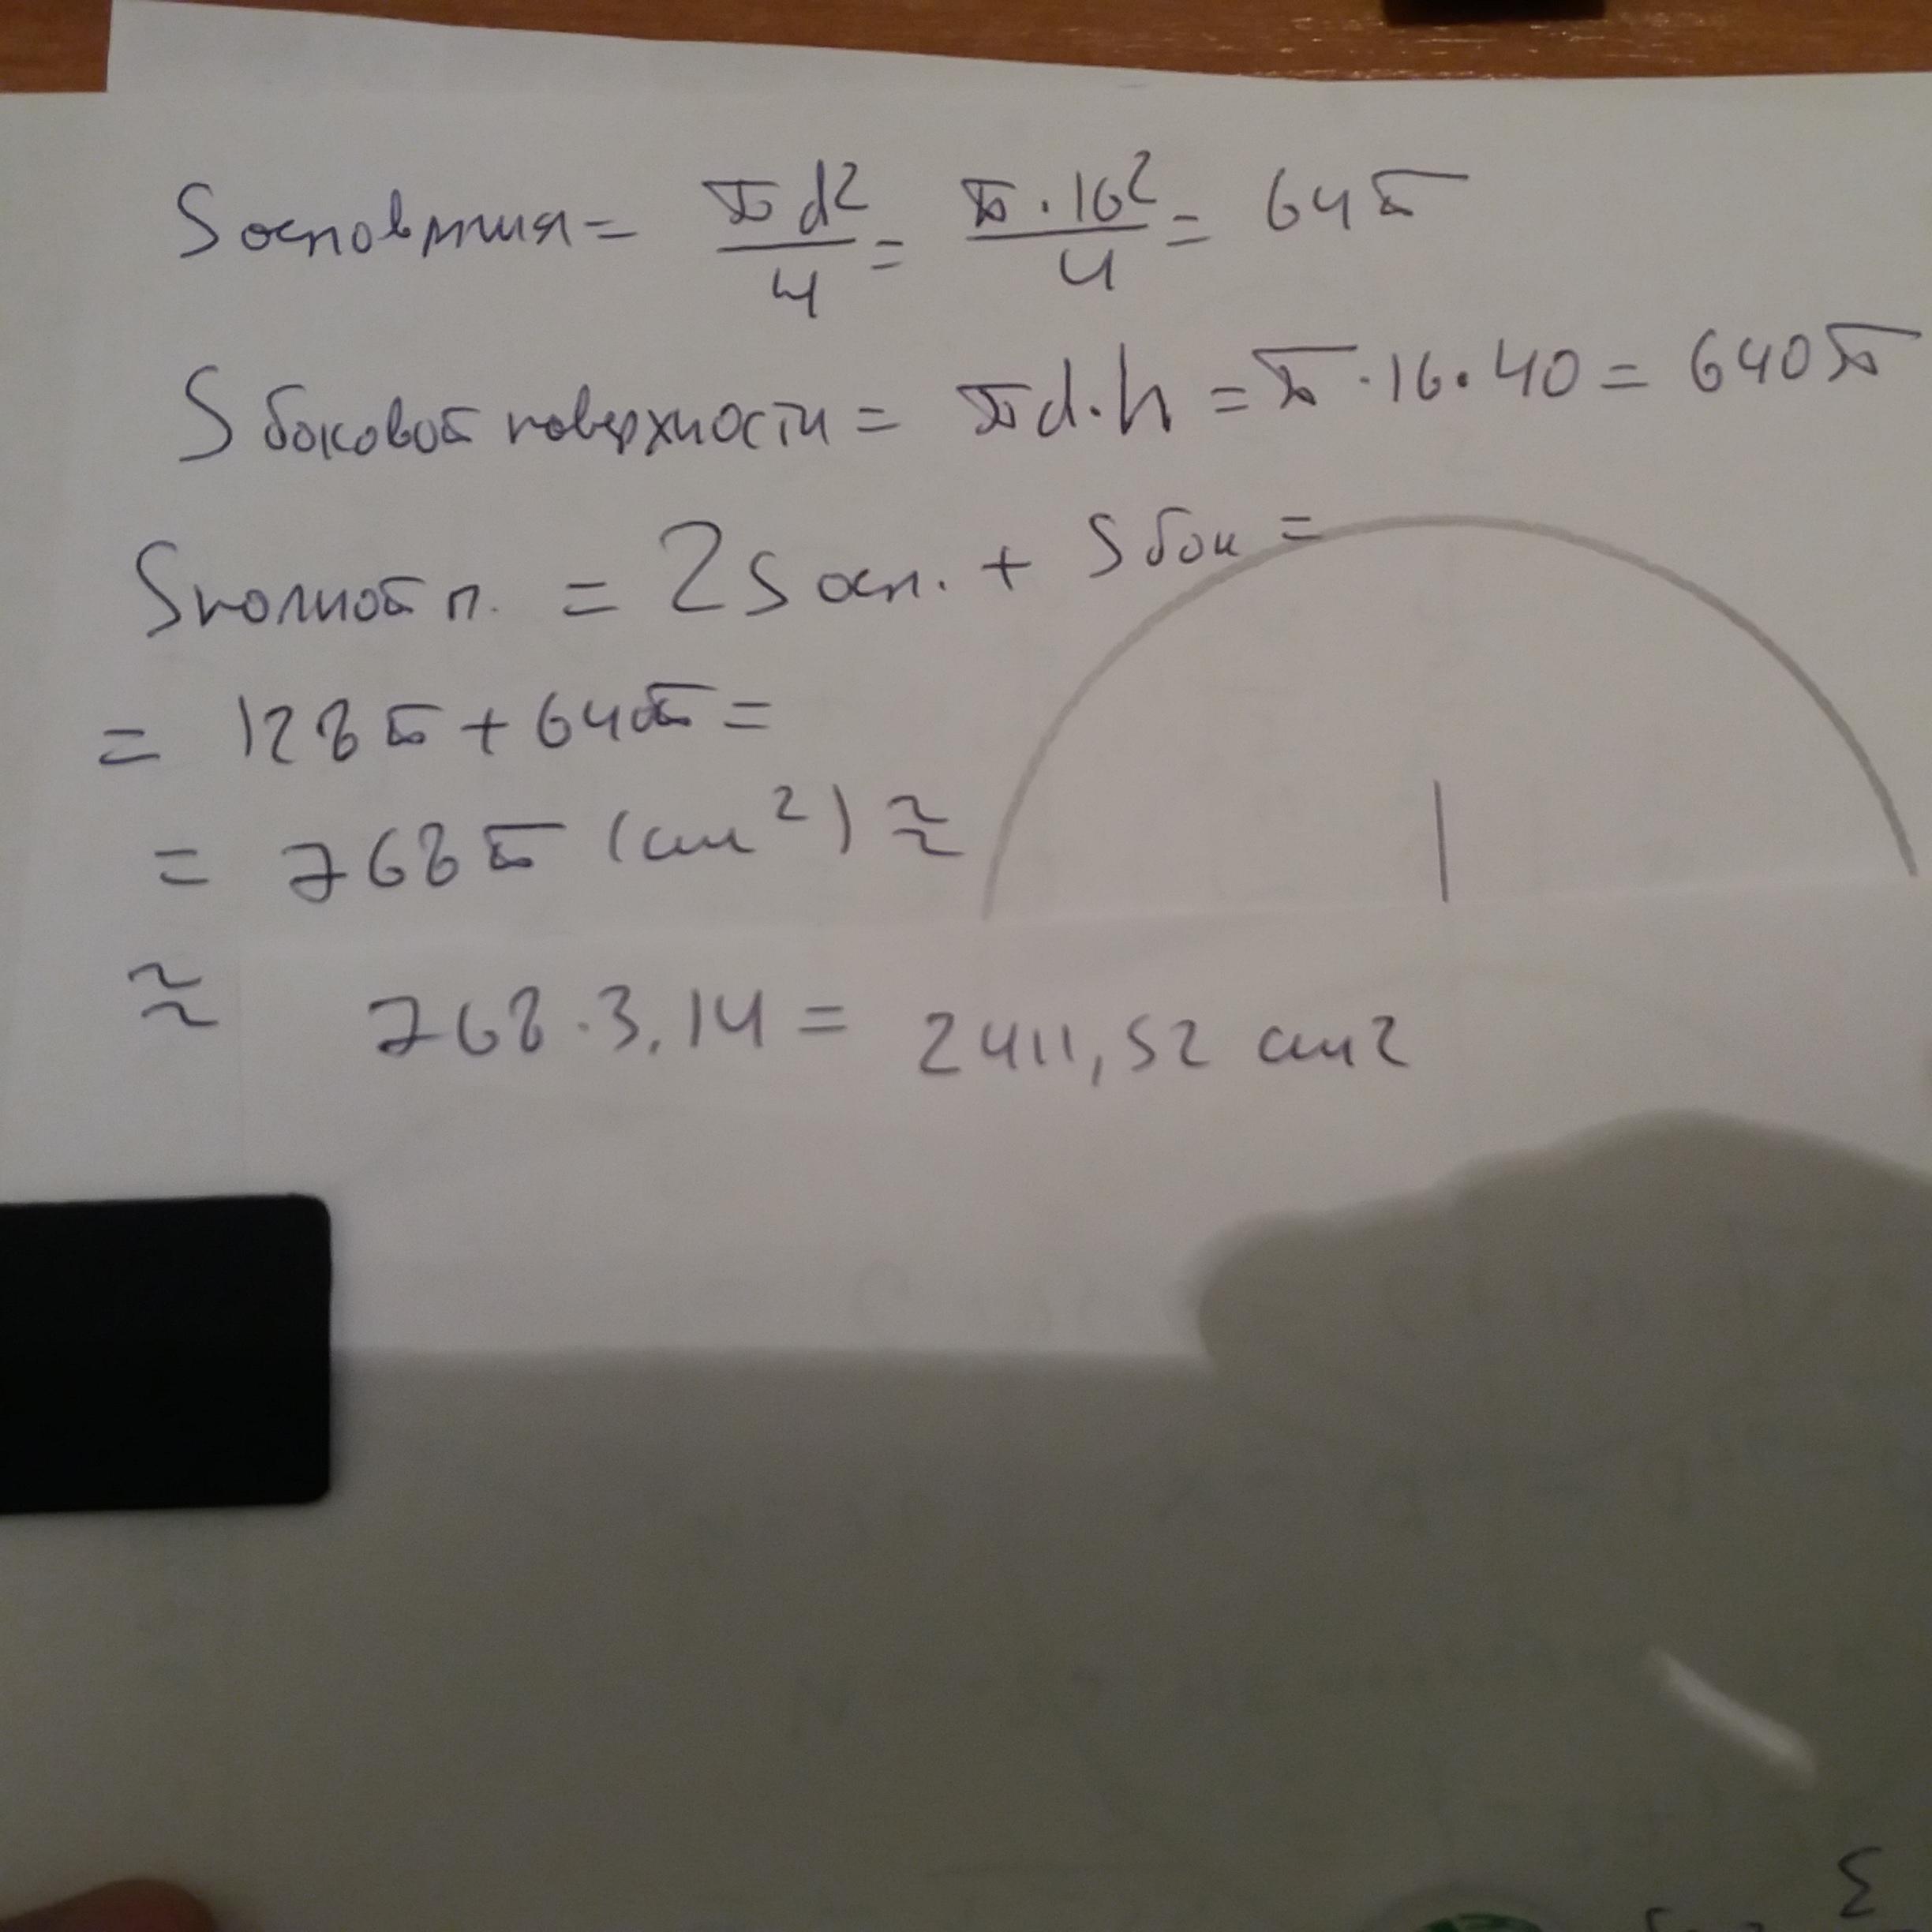 S основания = πd²/4 = π·16²/4 = 64π
S боковой поверхности = πd·h = π·16·40 = 640π
S полной п. = 2S осн. + S бок =
= 128π + 640π =
= 768π (см²) ≈
≈ 768·3,14 = 2411,52 см2